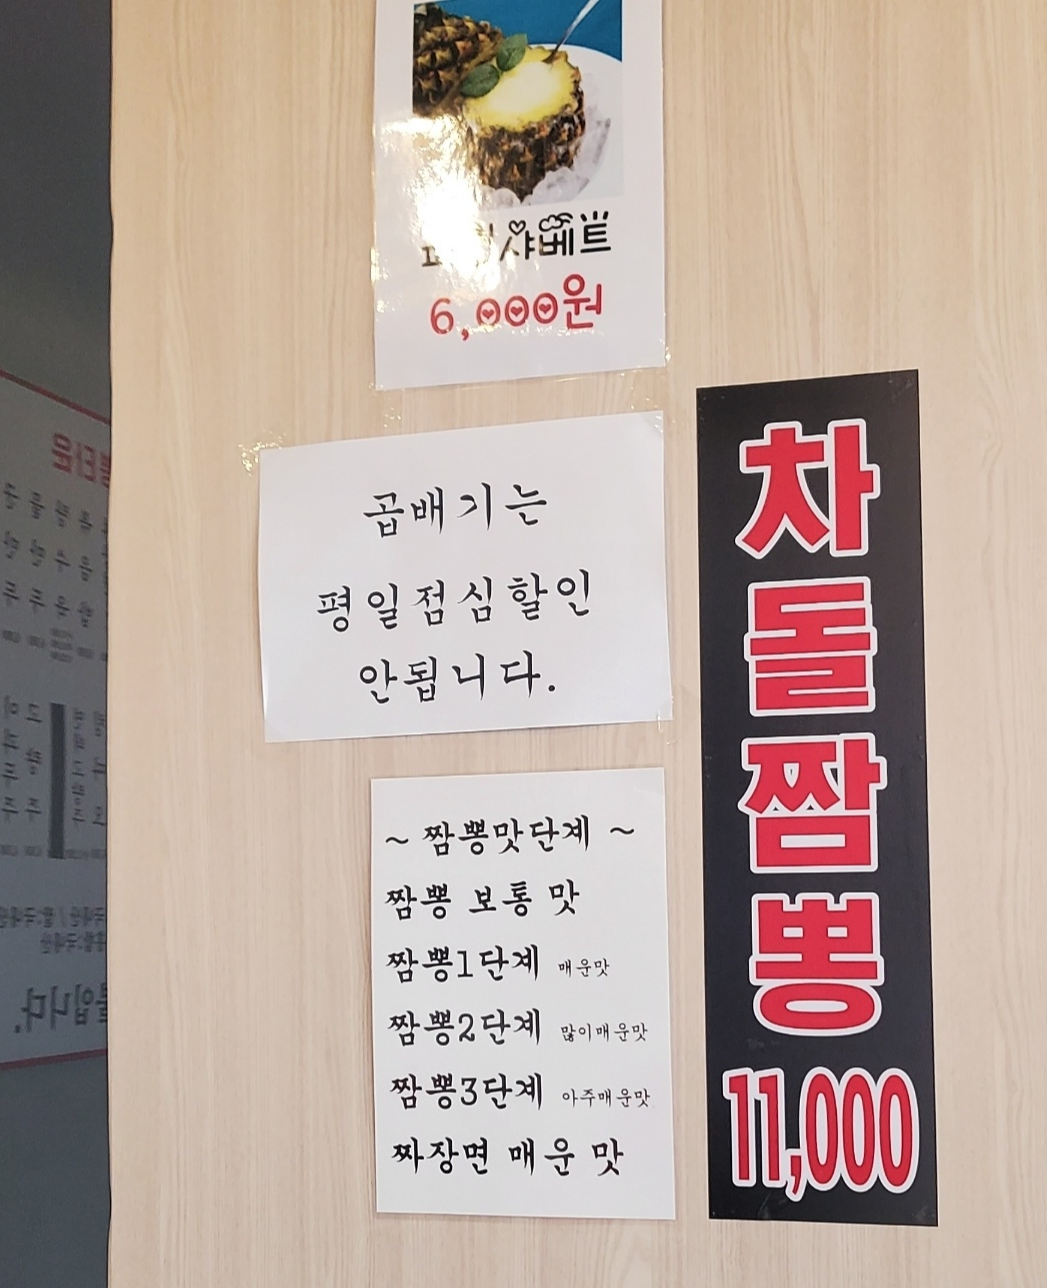 샤베트
6,000원
곱배기는
평일점심할인
안됩니다.
~ 짬뽕맛단계 ~
짬뽕 보통 맛
짬뽕1단계 매운맛
짬뽕2단계 많이매운맛
짬뽕3단계 아주매운맛
짜장면 매운 맛
차돌짬뽕
11,000